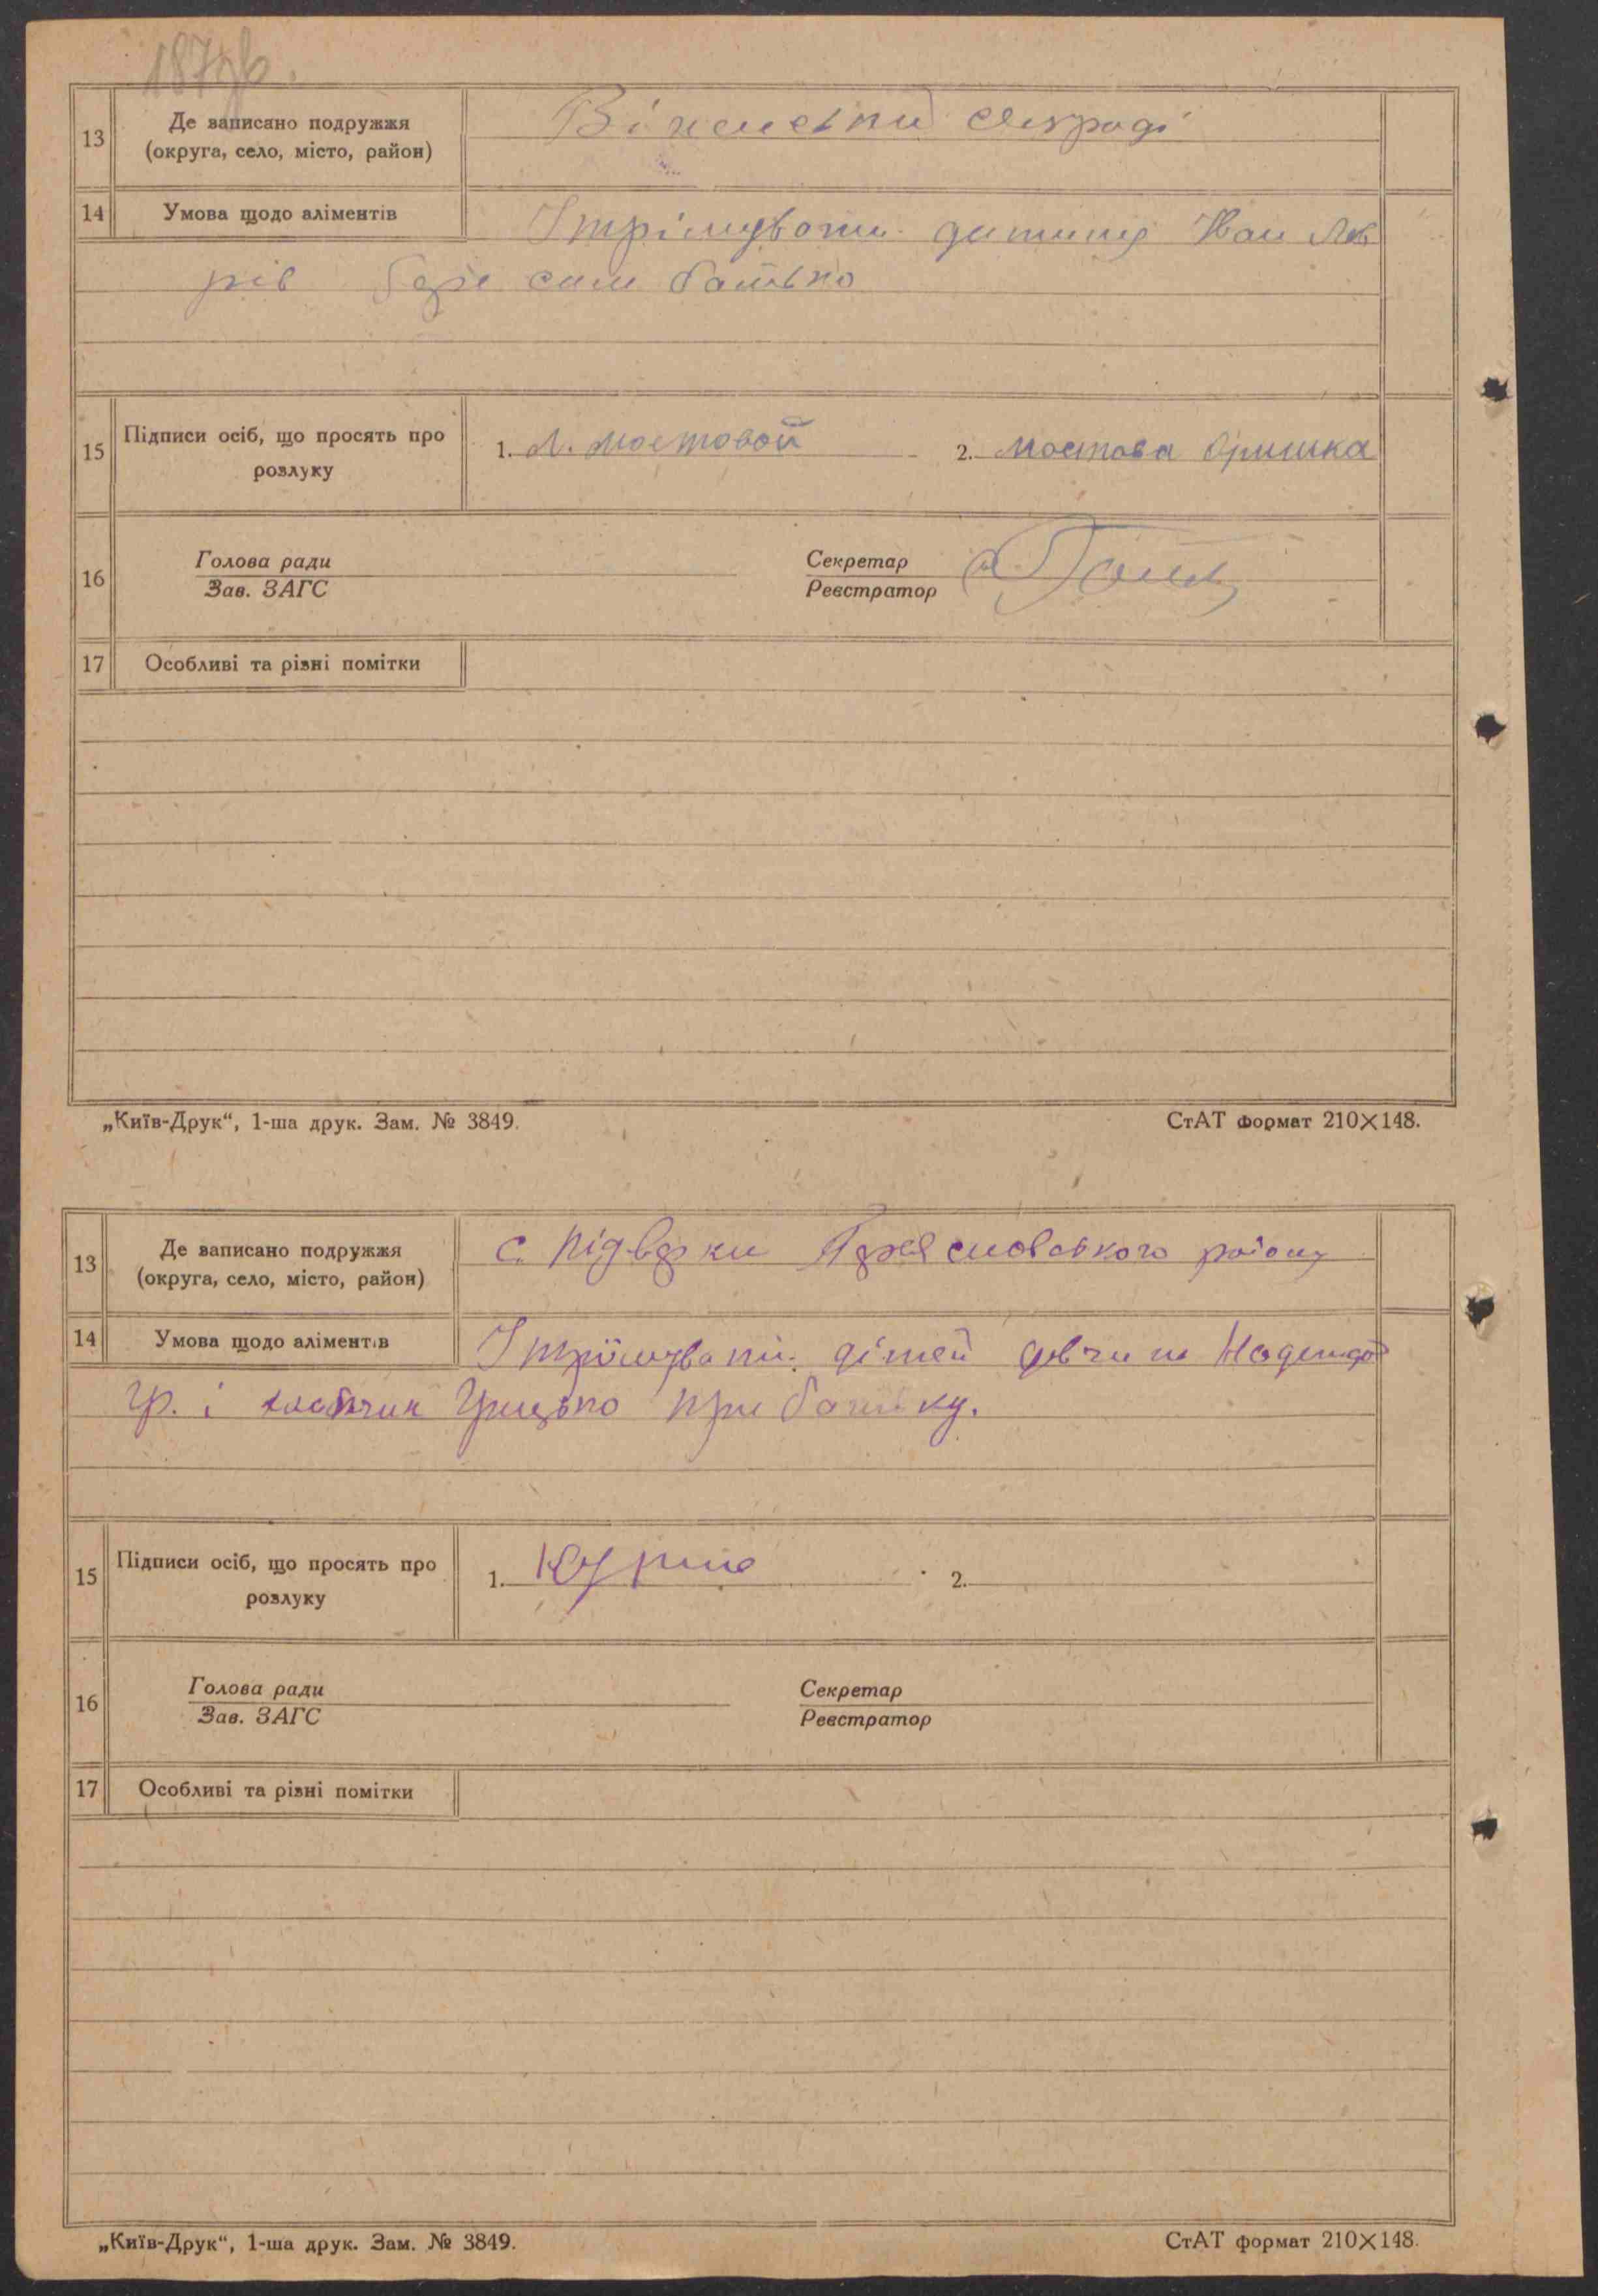 187зв.
13
Де записано подружжя
(округа, село, місто, район)
сельраді
14
Умова щодо аліментів
Утрімувати дитину Иван
бере сам батько
15
Підписи осіб, що просять про
розлуку
1. Л. Мостовой
2. Мостова Оришка
16
Голова ради
Зав. ЗАГС
Секретар
Реєстратор
17
Особливі та різні помітки
„Київ-Друк“, 1-ша друк. Зам. № 3849.
СтАТ формат 210×148.
13
Де записано подружжя
(округа, село, місто, район)
с. Підварки району
14
Умова щодо аліментів
дітей
Гр. і Грицько при батьку.
15
Підписи осіб, що просять про
розлуку
1.
2.
16
Голова ради
Зав. ЗАГС
Секретар
Реєстратор
17
Особливі та різні помітки
„Київ-Друк“, 1-ша друк. Зам. № 3849.
СтАТ формат 210×148.